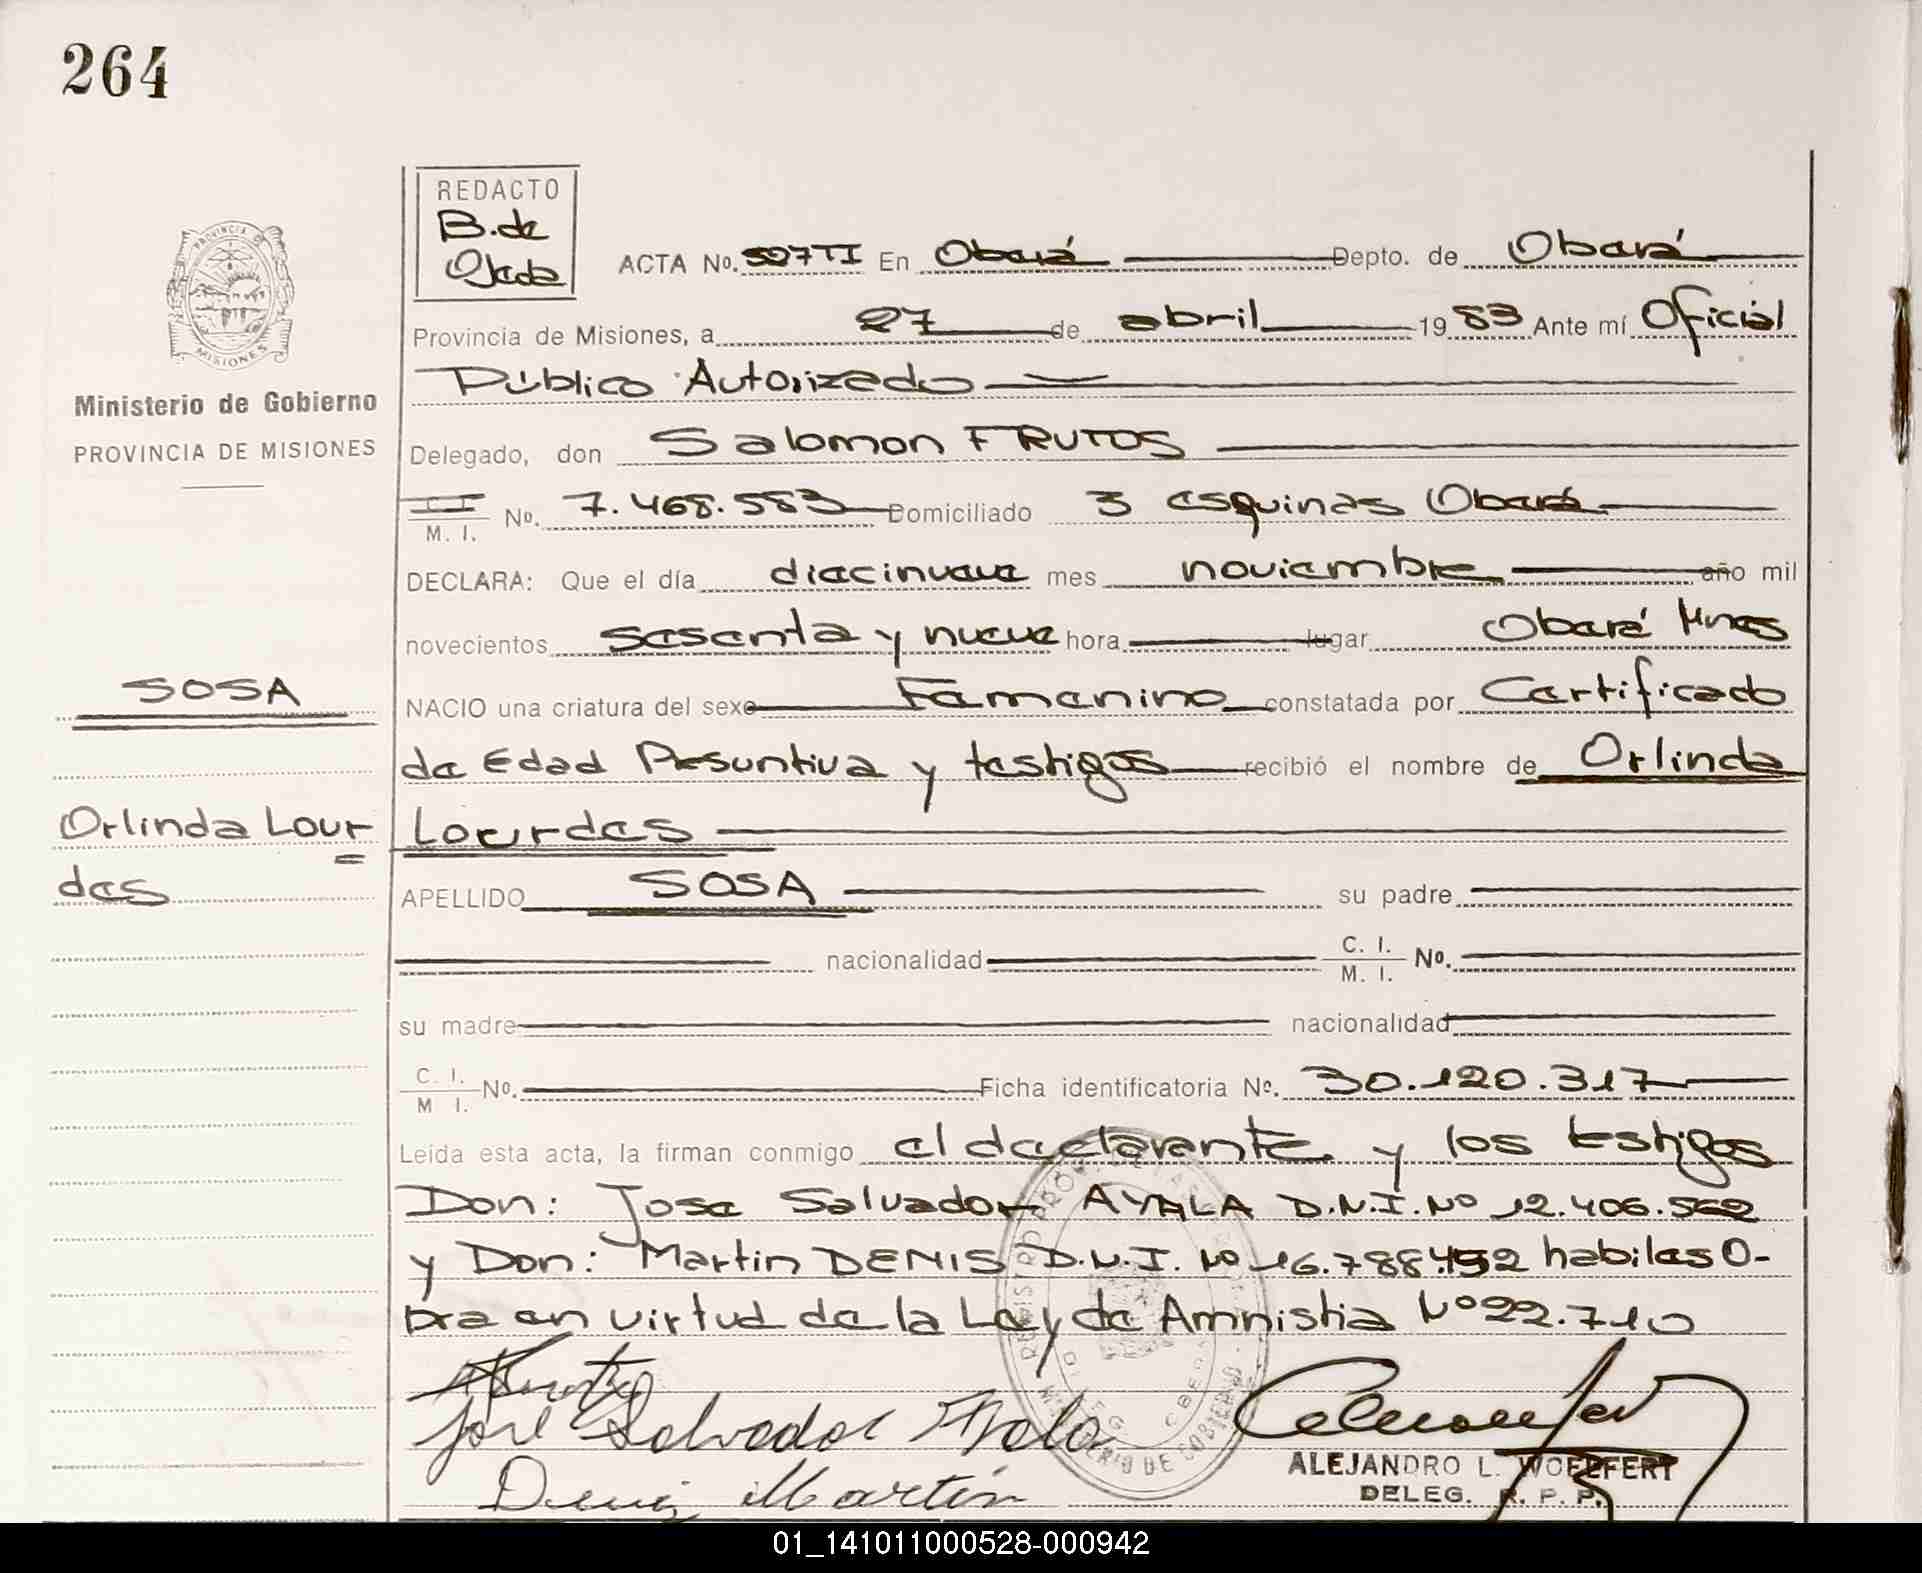 264
REDACTO
B. de
Ojeda
ACTA No. 507 TI En Oberá Depto. de Oberá
Provincia de Misiones, a 27 de abril 1983 Ante mí Oficial
Público Autorizado
Delegado, don Salomon FRUTOS
C. I.
M. I. No. 7.468.583 Domiciliado 3 esquinas Oberá
DECLARA: Que el día diecinueve mes noviembre año mil
novecientos sesenta y nueve hora lugar Oberá Mnes
NACIO una criatura del sexo Femenino constatada por Certificado
de Edad Presuntiva y testigos recibió el nombre de Orlinda
Lourdes
APELLIDO SOSA su padre
nacionalidad C. I. M. I. No.
su madre nacionalidad
C. I. M I. No. Ficha identificatoria No. 30.120.317
Leída esta acta, la firman conmigo el declarante y los testigos
Don: Jose Salvador AYALA D.N.I. No 12.406.562
y Don: Martin DENIS D.N.I. No 16.788.492 habiles O-
bra en virtud de la Ley de Amnistia No 22.710
José Salvador Ayala
Denis Martín
ALEJANDRO L. WOELFERT
DELEG. R. P. P.
PROVINCIA DE
MISIONES
Ministerio de Gobierno
PROVINCIA DE MISIONES
SOSA
Orlinda Lour
des
REGISTRO PROV. DE LAS PERSONAS
DELEG. OBERA
MINISTERIO DE GOBIERNO
01_141011000528-000942